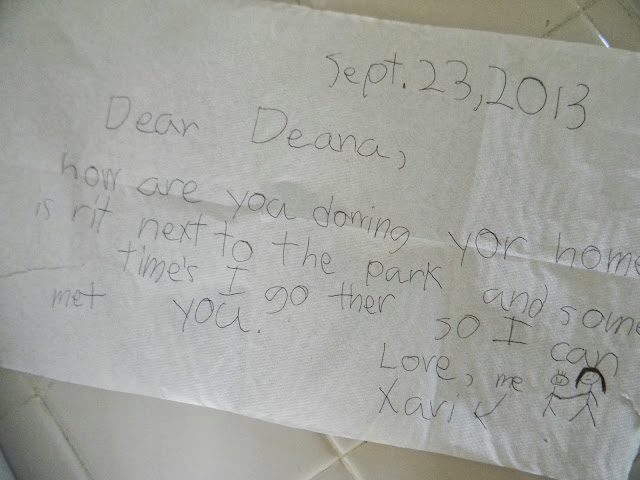 Sept. 23, 2013
Dear Deana,
how are you doming yor home
is rit next to the park and some
time's I go ther so I can
met you.
Love, me
Xavi